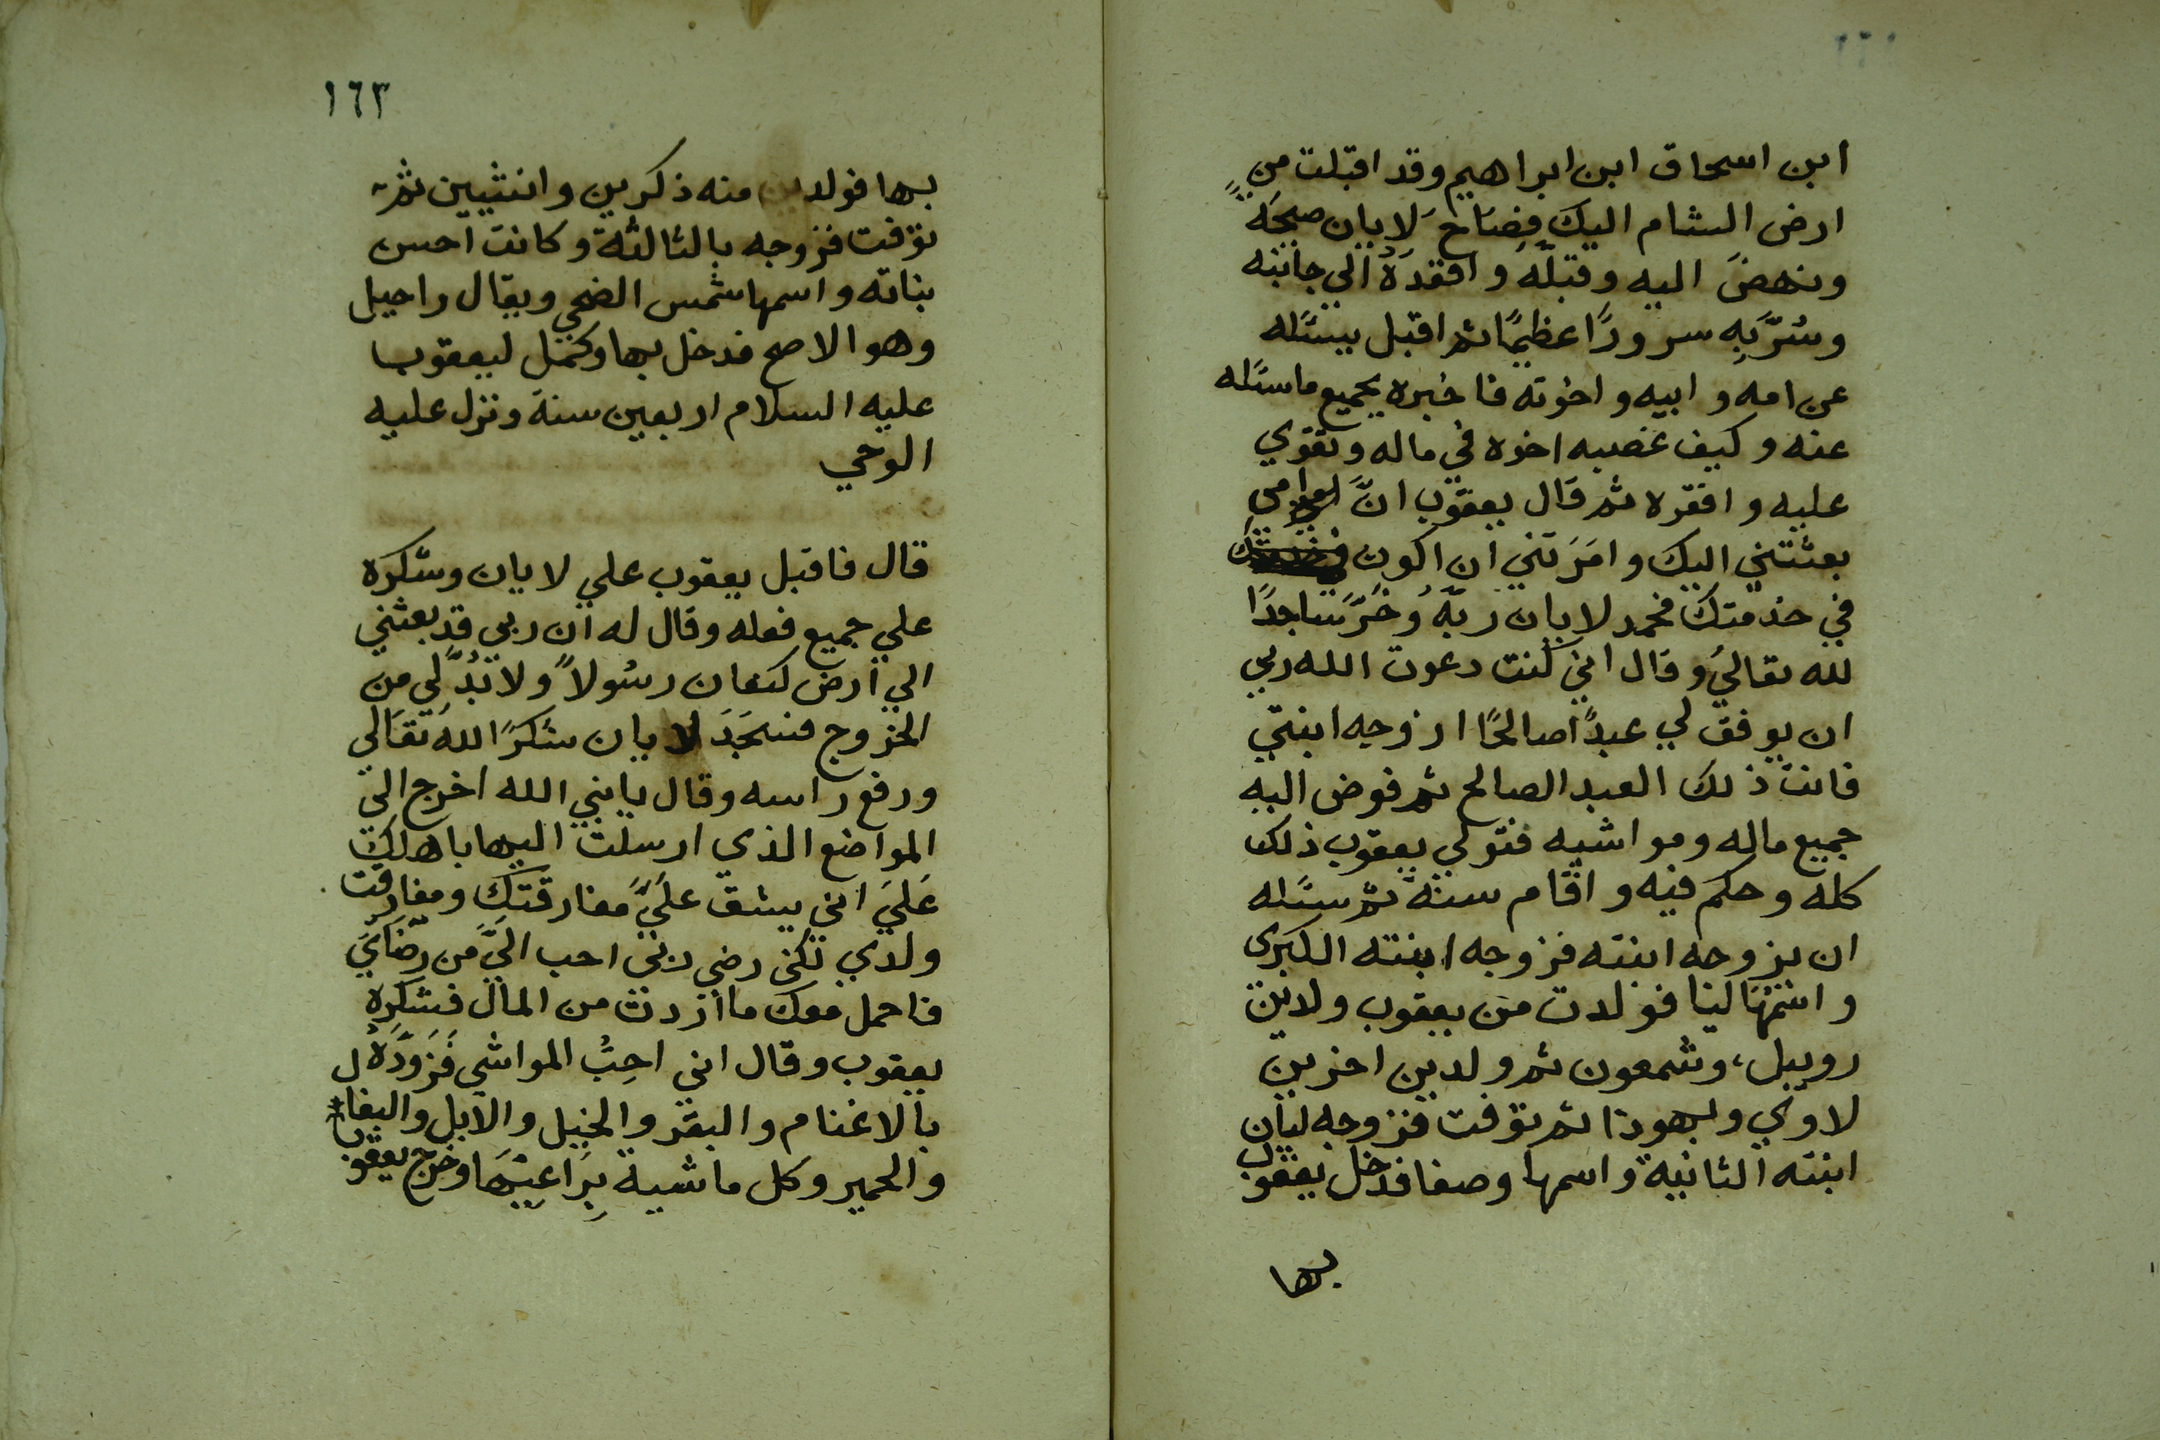 ابن اسحاق ابن ابراهيم وقد اقبلت من
ارض الشام اليك فصَاحَ لايان صيحَةً
ونهضَ اليه وقبلّه واقعَدَهُ الي جانبه
وسُرَّ بِهِ سرورًا عظيمًا ثم اقبل يسئَله
عن امه وابيه واخوته فاخبره بجميع ماسئَله
عنه وكيف غصبه اخوه في ماله وتقوي
عليه وافقره ثم قال يعقوب انَّ امي
بعثتني اليكَ وامَرَتني ان اكون
في خدمتك فحمد لايان ربّهُ وخَرَّ سَاجدًا
لله تعاليُ وقال اني كنت دعوت الله ربي
ان يوفق لي عبدًا صالحًا ازوجه ابنتي
فانت ذلك العبد الصالح ثم فوض اليه
جميع ماله ومواشيه فتولي يعقوب ذلك
كله وحكم فيه واقام سنةً ثم سئَله
ان يزوجه ابنته فزوجه ابنته الكبَرى
واسْمهَا ليا فولدت من يعقوب ولدين
روبيل، وشمعون ثم ولدين اخرين
لاوي ويهوذا ثم توفت فزوجه لبان
ابنته الثانية واسمها وصفا فدخل يعقوب
بها
١٦٣
بها فولدين منه ذكرين وانثيين ثم
توفت فزوجه بالثالثة وكانت احسن
بناته واسمها شمس الضحي ويقال راحيل
وهو الاصح فدخل بها وكمل ليعقوب
عليه السلام اربعين سنة ونزل عليه
الوحي
قال فاقبل يعقوب علي لايان وشكره
علي جميع فعله وقال له ان ربي قد بعثني
الي ارض كنعان رسُولاً ولا بُدَّ لي من
الخروج فسَجَدَ لايان شكرًا للهِ تعَالى
ورفع راسه وقال يابني الله اخرج الي
المواضع الذي ارسلت اليها باهلك
عَليَ اني يشق علَيَّ مفارقتك ومفارقت
ولدي لكن رضي ربي احب اليَّ من رضَايَ
فاحمل معك ما اردت من المال فشكره
يعقوب وقال اني احِبُ المواشي فَزَوّدَهُ
بالاغنام والبقر والخيل والابل والبغال
والحمير وكل ماشية بِرَاعِيْهَا وخرج يعقوب